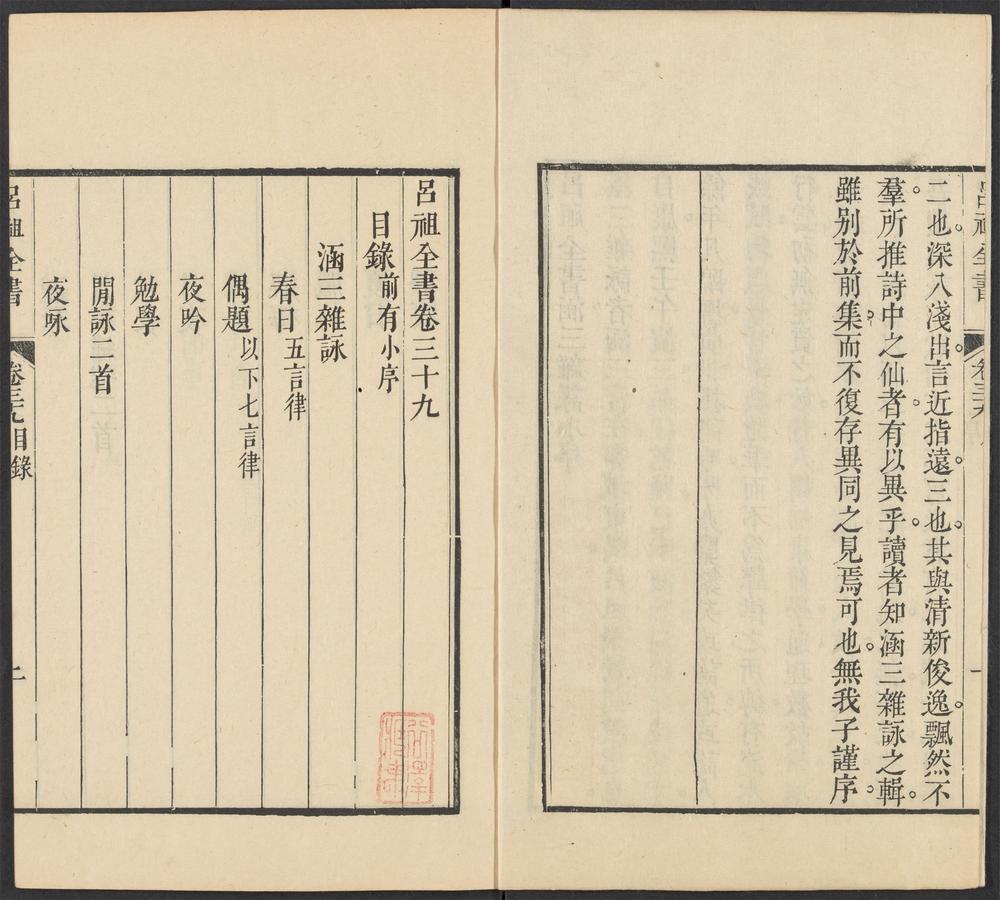 呂祖全書
卷三九
一
二也。深入淺出。言近指遠。三也。其與清新俊逸。飄然不
羣。所推詩中之仙者。有以異乎。讀者知涵三雜詠之輯。
雖別於前集。而不復存異同之見焉可也。無我子謹序。
呂祖全書卷三十九
目錄前有小序
涵三雜詠
春日五言律
偶題以下七言律
夜吟
勉學
閒詠二首
夜咏
呂祖全書
卷三九目錄
二